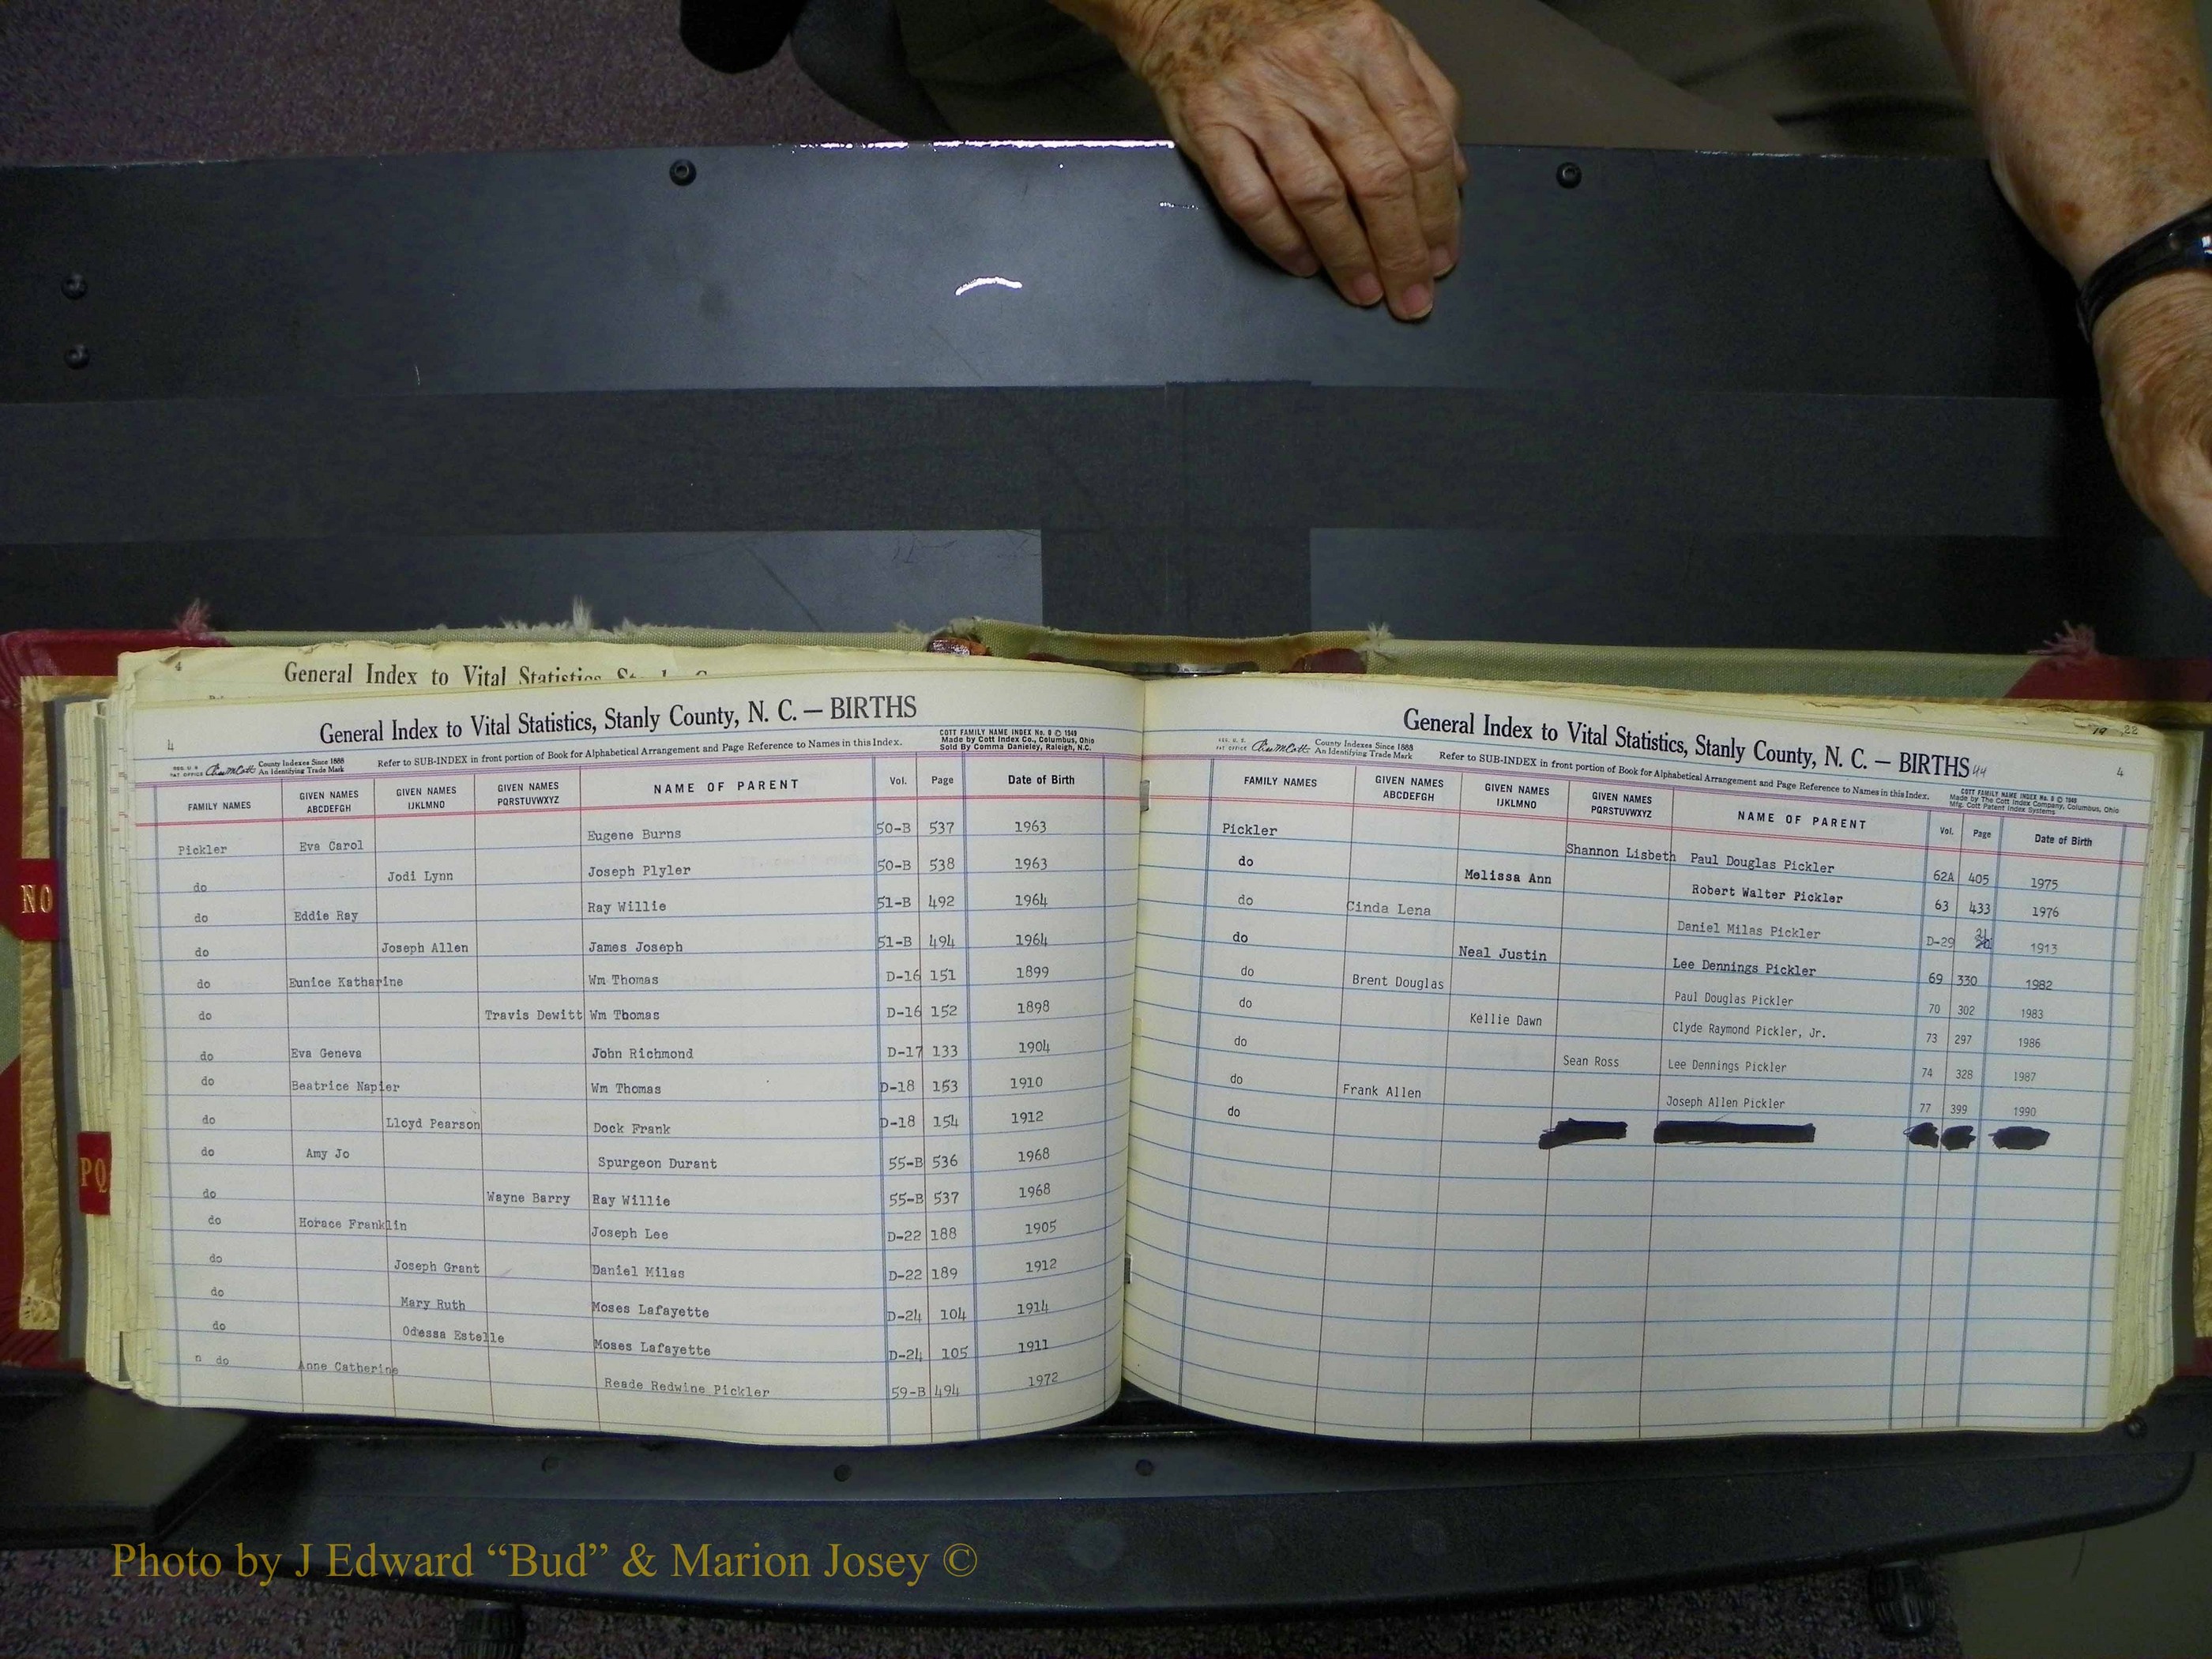 NO
PQ
4
General Index to Vital Statistics
4
General Index to Vital Statistics, Stanly County, N. C. — BIRTHS
County Indexes Since 1888
An Identifying Trade Mark
Refer to SUB-INDEX in front portion of Book for Alphabetical Arrangement and Page Reference to Names in this Index.
COTT FAMILY NAME INDEX No. 8 © 1949
Made by Cott Index Co., Columbus, Ohio
Sold By Comma Danieley, Raleigh, N.C.
FAMILY NAMES GIVEN NAMES ABCDEFGH GIVEN NAMES IJKLMNO GIVEN NAMES PQRSTUVWXYZ NAME OF PARENT Vol. Page Date of Birth
Pickler Eva Carol Eugene Burns 50-B 537 1963
do Jodi Lynn Joseph Plyler 50-B 538 1963
do Eddie Ray Ray Willie 51-B 492 1964
do Joseph Allen James Joseph 51-B 494 1964
do Eunice Katharine Wm Thomas D-16 151 1899
do Travis Dewitt Wm Tbomas D-16 152 1898
do Eva Geneva John Richmond D-17 133 1904
do Beatrice Napier Wm Thomas D-18 153 1910
do Lloyd Pearson Dock Frank D-18 154 1912
do Amy Jo Spurgeon Durant 55-B 536 1968
do Wayne Barry Ray Willie 55-B 537 1968
do Horace Franklin Joseph Lee D-22 188 1905
do Joseph Grant Daniel Milas D-22 189 1912
do Mary Ruth Moses Lafayette D-24 104 1914
do Odessa Estelle Moses Lafayette D-24 105 1911
n do Anne Catherine Reade Redwine Pickler 59-B 494 1972
22
General Index to Vital Statistics, Stanly County, N. C. — BIRTHS 44
4
County Indexes Since 1888
An Identifying Trade Mark
Refer to SUB-INDEX in front portion of Book for Alphabetical Arrangement and Page Reference to Names in this Index.
COTT FAMILY NAME INDEX No. 8 © 1949
Made by The Cott Index Company, Columbus, Ohio
Mfg. Cott Patent Index Systems
FAMILY NAMES GIVEN NAMES ABCDEFGH GIVEN NAMES IJKLMNO GIVEN NAMES PQRSTUVWXYZ NAME OF PARENT Vol. Page Date of Birth
Pickler Shannon Lisbeth Paul Douglas Pickler 62A 405 1975
do Melissa Ann Robert Walter Pickler 63 433 1976
do Cinda Lena Daniel Milas Pickler D-29 1913
do Neal Justin Lee Dennings Pickler 69 330 1982
do Brent Douglas Paul Douglas Pickler 70 302 1983
do Kellie Dawn Clyde Raymond Pickler, Jr. 73 297 1986
do Sean Ross Lee Dennings Pickler 74 328 1987
do Frank Allen Joseph Allen Pickler 77 399 1990
do
Photo by J Edward “Bud” & Marion Josey ©